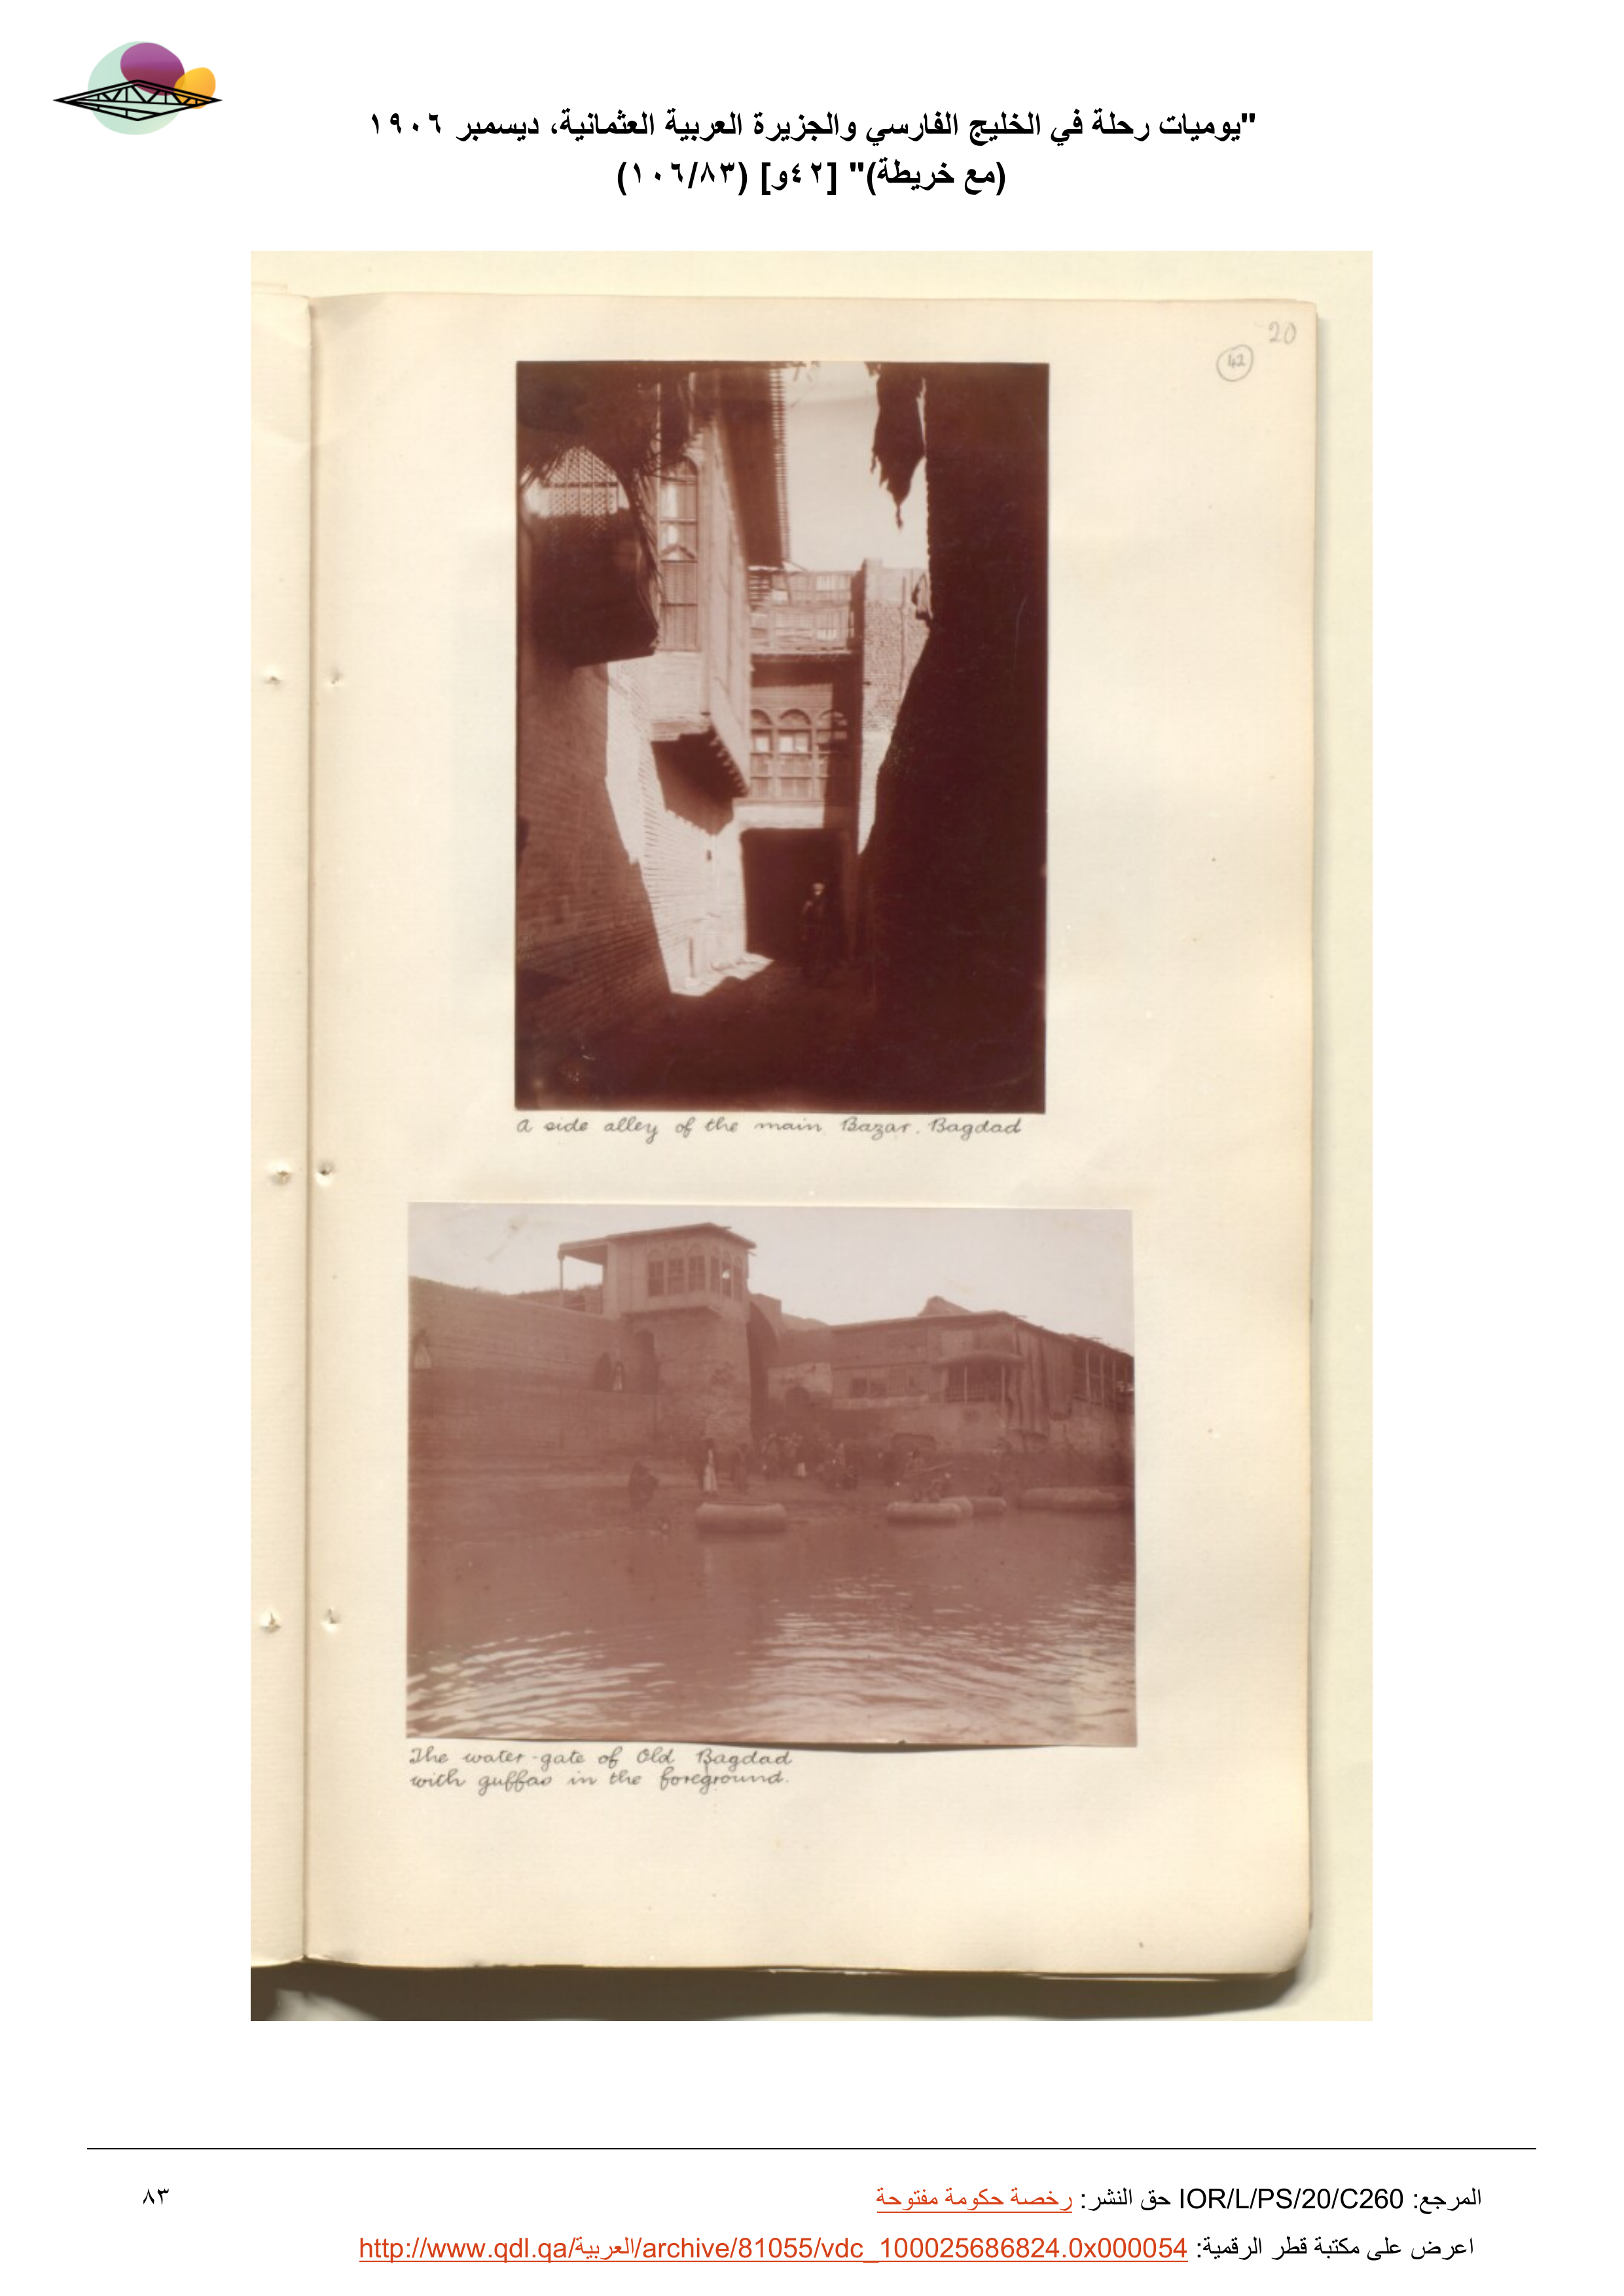 "يوميات رحلة في الخليج الفارسي والجزيرة العربية العثمانية، ديسمبر ١٩٠٦
(مع خريطة)" [٤٢و] (١٠٦/٨٣)
20
42
A side alley of the main Bazar. Bagdad
The water-gate of Old Bagdad
with guffas in the foreground.
المرجع: IOR/L/PS/20/C260 حق النشر: رخصة حكومة مفتوحة
٨٣
اعرض على مكتبة قطر الرقمية: http://www.qdl.qa/العربية/archive/81055/vdc_100025686824.0x000054